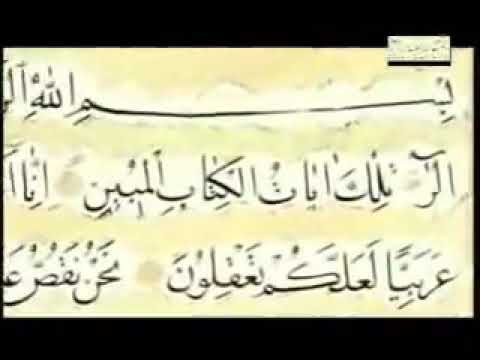 بِسْمِ اللهِ
الٓرٰ تِلْكَ اٰيَاتُ الْكِتَابِ الْمُبِيْنِ اِنَّا
عَرَبِيًّا لَعَلَّكُمْ تَعْقِلُوْنَ نَحْنُ نَقُصُّ